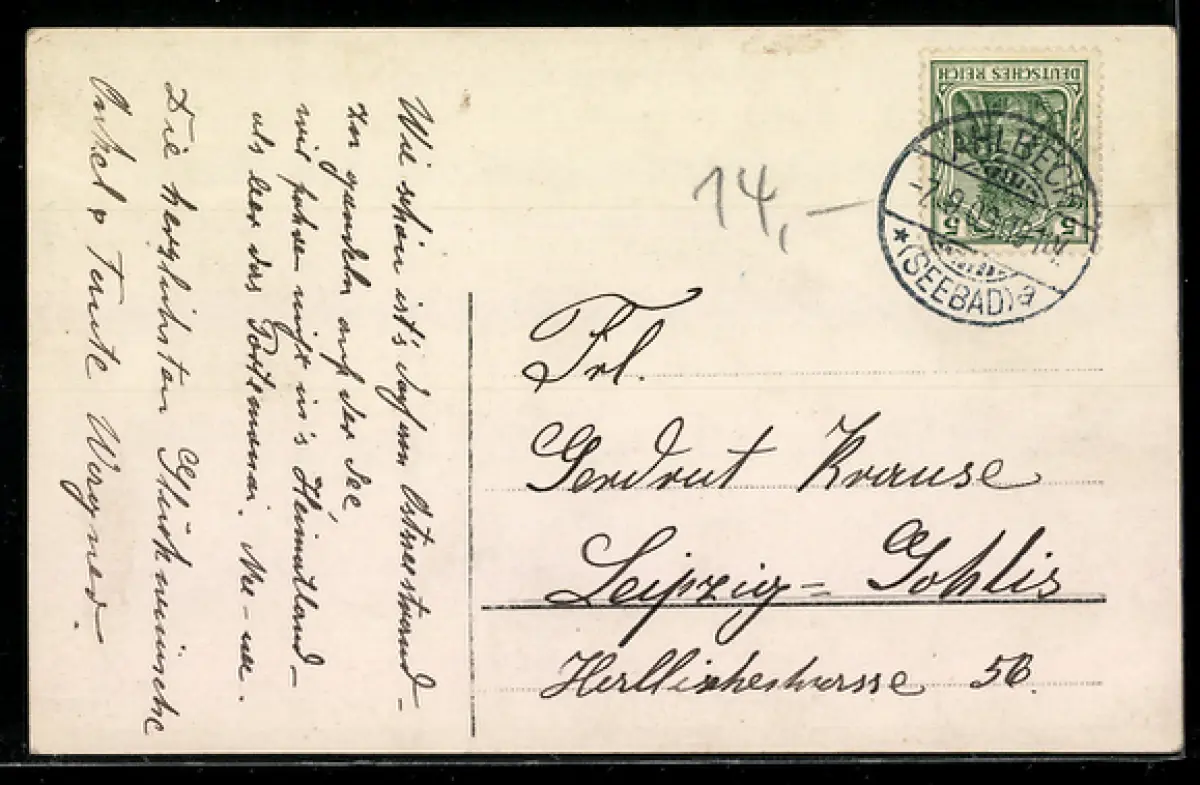 Wie schön ist's doch am Ostseestrand –
Zu gondeln auf der See
wir fahren nicht in's Heimatland –
als leer das Portemonai. Nee – nee.
Die herzlichsten Glückwünsche
Onkel & Tante Wegner.
14,–
DEUTSCHES REICH
5 5
AHLBECK
* (SEEBAD) a
Frl.
Gerdrut Krause
Leipzig – Gohlis
Hallischestrasse 56.